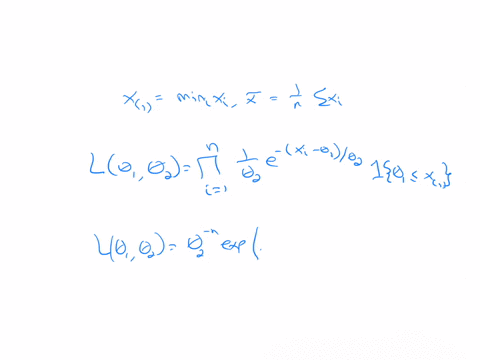 x₍₁₎ = minᵢ xᵢ, x̄ = 1/n Σxᵢ
L(θ₁, θ₂) = ∏ᵢ₌₁ⁿ 1/θ₂ e^{-(xᵢ-θ₁)/θ₂} 1{θ₁ ≤ x₍₁₎}
L(θ₁, θ₂) = θ₂⁻ⁿ exp(